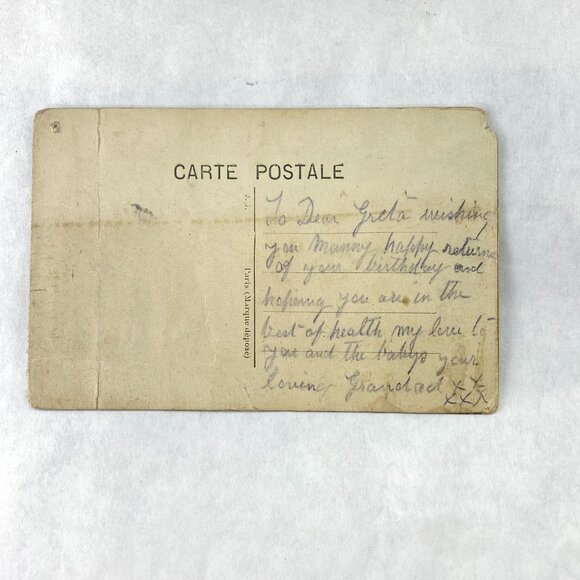 CARTE POSTALE
J. J. Paris (Marque déposé)
To Dear Greta wishing
you Manny happy returns
of your birthday and
hopeing you are in the
best of health my love to
you and the babys your
loving Grandad x x
xxx